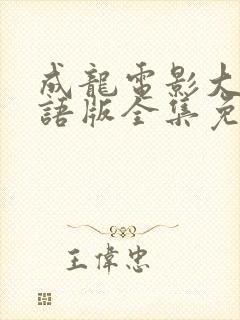 成龍電影大
語版全集免
王偉忠